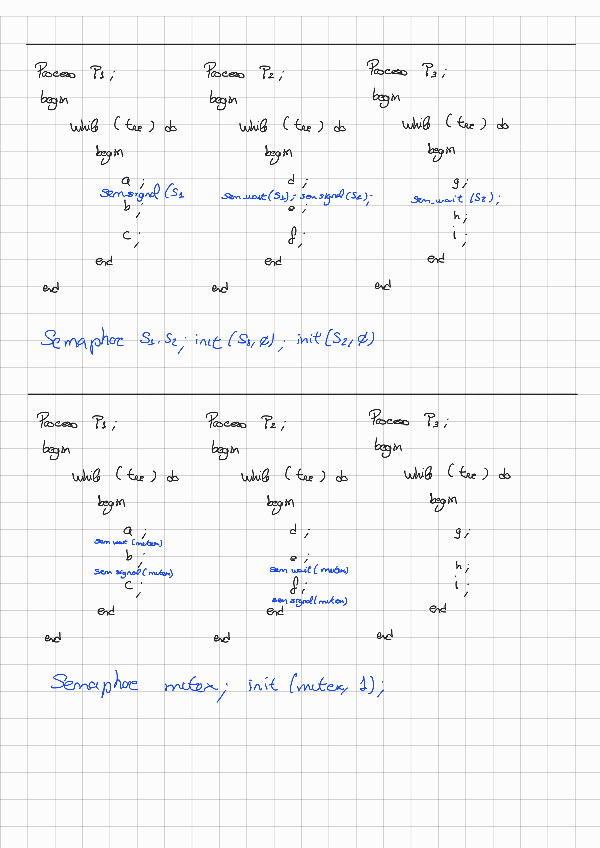 Process P1; Process P2; Process P3;
begin begin begin
while (true) do while (true) do while (true) do
begin begin begin
a; d; g;
sem signal (S1 sem wait(S1); sem signal(S2); sem_wait (S2);
b; e; h;
c; f; i;
end end end
end end end
Semaphore S1, S2; init (S1, 0); init (S2, 0)
Process P1; Process P2; Process P3;
begin begin begin
while (true) do while (true) do while (true) do
begin begin begin
a; d; g;
sem wait (mutex)
b; e; h;
sem signal (mutex) sem wait (mutex)
c; f; i;
sem signal (mutex)
end end end
end end end
Semaphore mutex; init (mutex, 1);